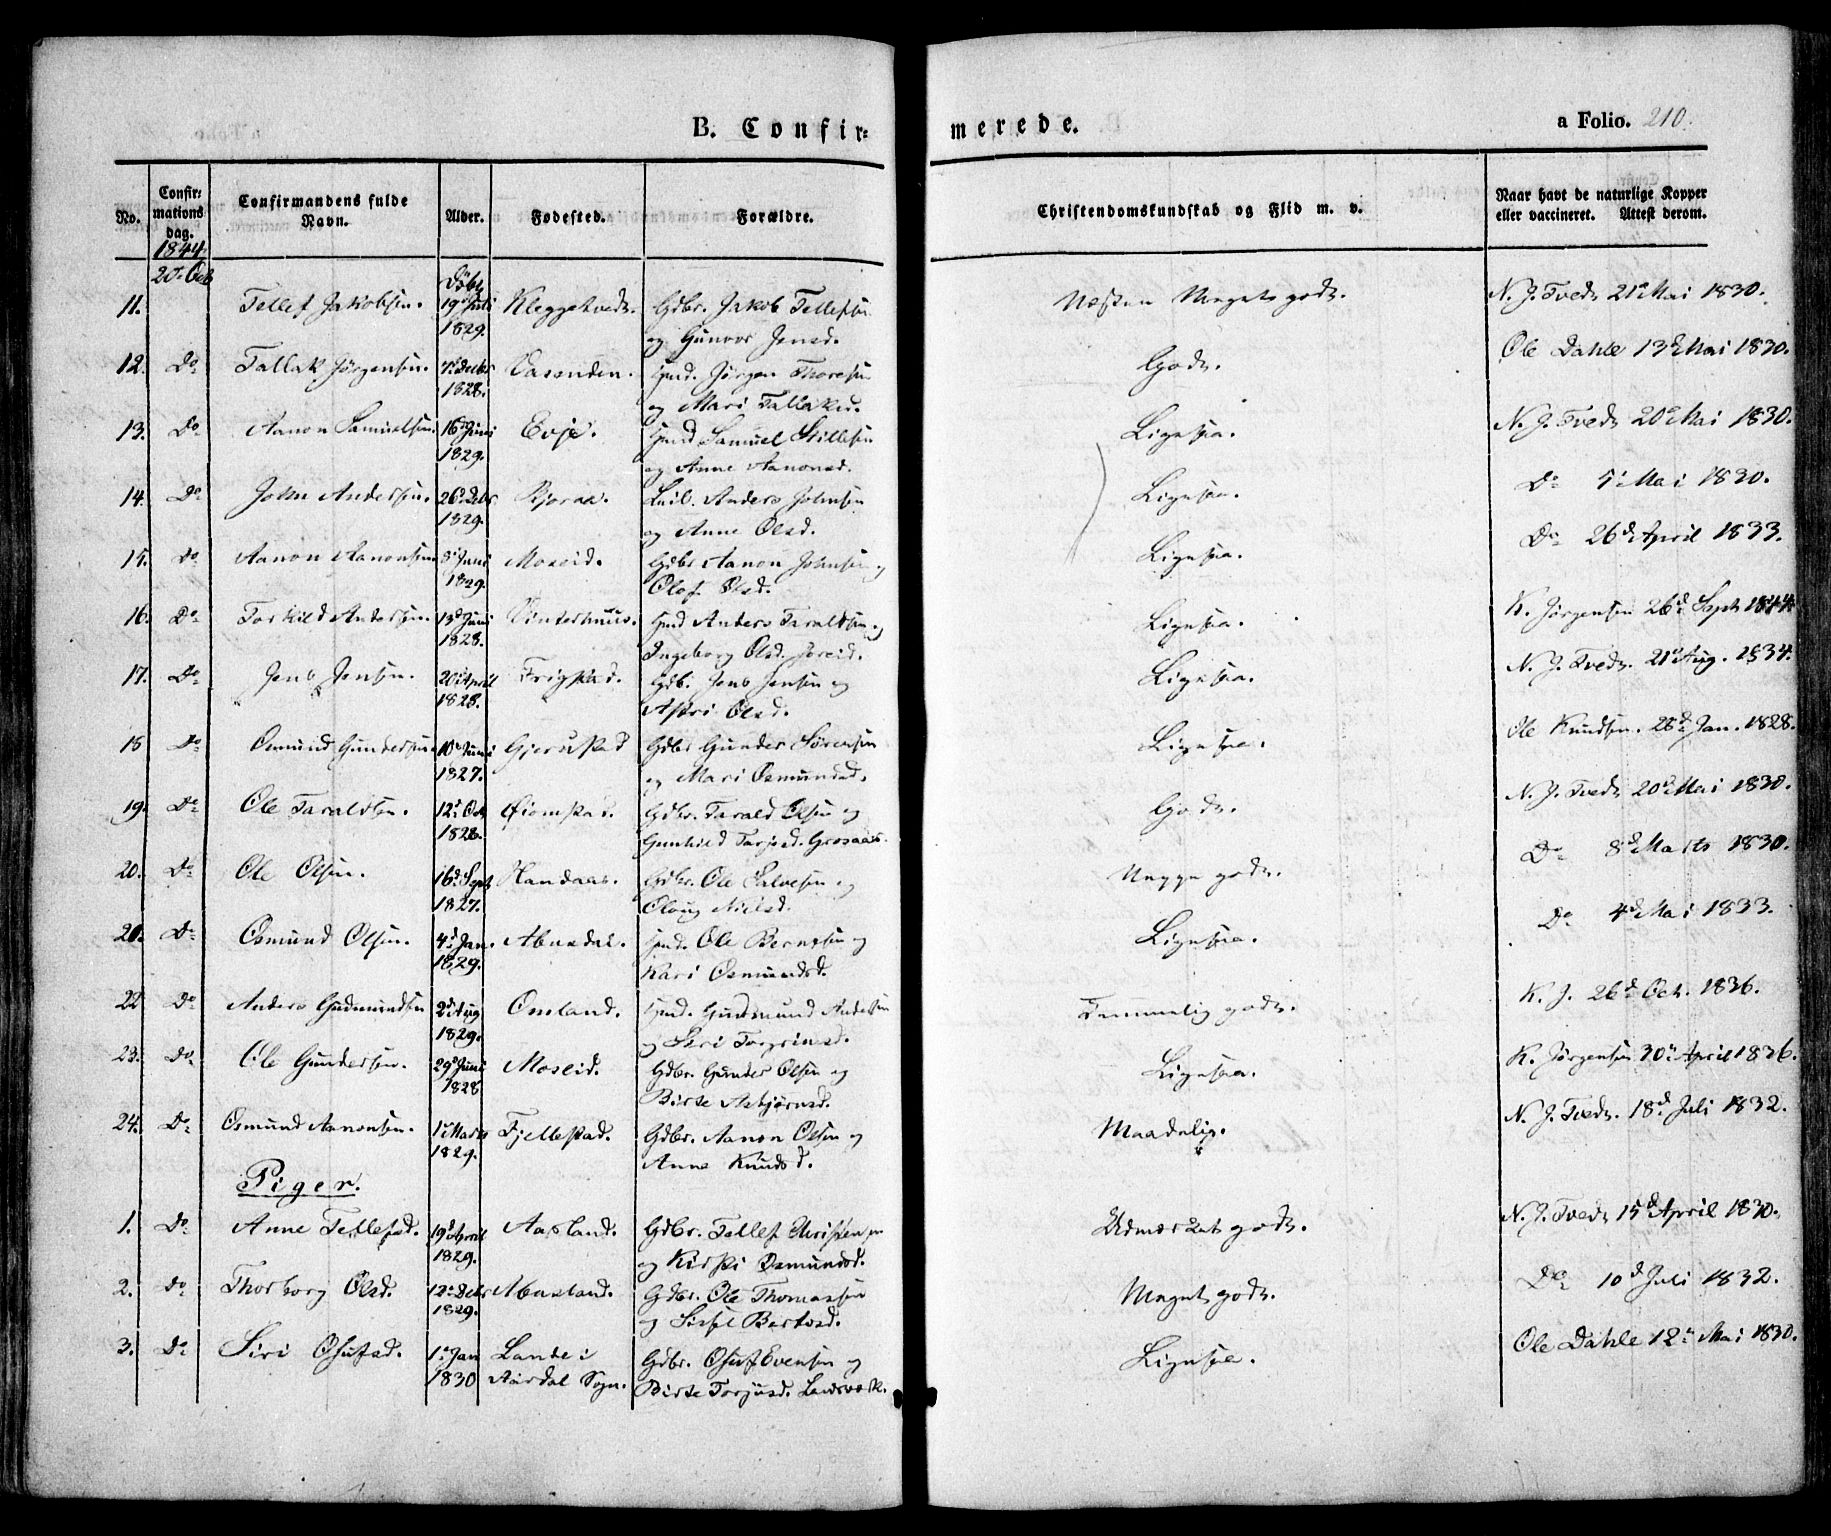 B. Confir=
merede.
a Folio. 210.
No.
Confir=
mations
dag.
Confirmandens fulde
Navn.
Alder.
Fødested.
Forældre.
Christendomskundskab og Flid m. v.
Naar havt de naturlige Kopper
eller vaccineret. Attest derom.
1844.
20. Oct Døbt
11. Tellef Jakobsen. 19 Juli Kleggetvedt. Gdbr. Jakob Tellefsen Næsten Meget godt. N. J. Tvedt 21 Mai 1830.
1829. og Gunvor Jensd.
12. Do Tallak Jørgensen. 7 Decbr Vasenden. Hmd. Jørgen Thoresen Godt. Ole Dahle 13d Mai 1830.
1828. og Mari Tallaksd.
13. Do Aanon Samuelsen. 16 Juni Evje. Hmd Samuel Stillesen Ligesaa. N. J. Tvedt 20 Mai 1830.
1829. og Anne Aanonsd.
14. Do John Andersen. 26 Debr Kjeraa. Leil. Anders Johnsen Ligesaa. Do 5 Mai 1830.
1829. og Anne Olsd.
15. Do Aanon Aanonsen 8 Juni Moseid. Gdbr Aanon Johnsen og Ligesaa. Do 26d April 1833.
1829. Olof Olsd.
16. Do Torkild Andersen. 13d Juni Vinterhuus. Hmd Anders Taraldsen og Ligesaa. K. Jørgensen 26d Sept 1844.
1828. Ingeborg Olsd.
17. Do Jens Jensen. 20 April Frigstad. Gdb. Jens Jensen og Ligesaa. N. J. Tvedt. 21 Aug. 1834.
1828. Astri Olsd.
18 Do Osmund Gundersen 10 Juni Gjerustad Gdbr Gunder Sørensen Ligesaa. Ole Knudsen. 28d Jan. 1828.
1827. og Mari Osmundsd.
19. Do Ole Taraldsen. 12d Oct Øiomstad. Gdbr. Tarald Olsen og Godt. N. J. Tvedt 20d Mai 1830.
1828. Gunhild Torjusd. Grosaas.
20. Do Ole Olsen. 16d Sept Handaas. Gdbr. Ole Salvesen og Meget godt. Do 8d Marts 1830.
1827. Oloug Nielsd.
20. Do Osmund Olsen. 4d Jan. Abusdal. Hmd. Ole Berntsen og Ligesaa. Do 4d Mai 1833.
1829. Kari Osmundsd.
22 Do Anders Gudmundsen 2d Aug Omland. Hmd. Gudmund Andersen Temmelig godt. K. J. 26d Oct. 1836.
1829. og Siri Torgrimsd.
23. Do Ole Gundersen. 29 Juni Moseid. Gdbr. Gunder Olsen og Ligesaa. K. Jørgensen 30 April 1836.
1828 Birte Asbjørnsd.
24. Do Osmund Aanonsen. 1 Marts Fjellestad. Gdbr. Aanon Olsen og Maadelig. N. J. Tvedt. 18d Juli 1832.
1829. Anne Knudsd.
Piger.
1. Do Anne Tellefsd. 19d April Aasland. Gdbr. Tellef Christensen Udmærket godt. N. J. Tvedt 15d April 1830.
1829. og Kirsti Osmundsd.
2. Do Thorborg Olsd. 12 Debr Abusland. Gdbr. Ole Thomassen Meget godt. Do 10d Juli 1832.
1829. og Sissel Bertesd.
3. Do Siri Olufsd. 1 Jan Lande i Gdbr. Oluf Evensen og Ligesaa. Ole Dahle 12 Mai 1830.
1830 Aardal Sogn. Birte Torjusd. Landsværk.